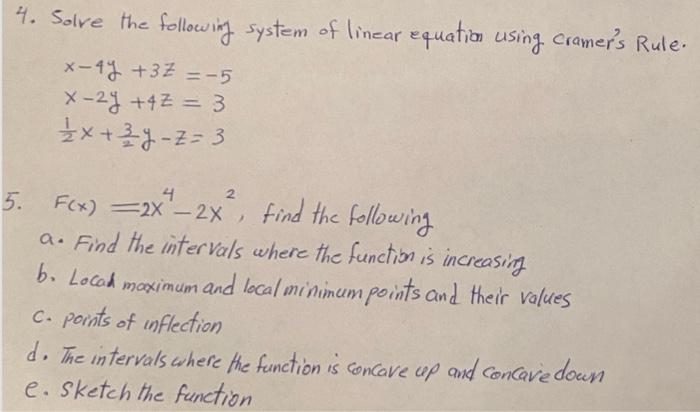 4. Solve the following system of linear equation using Cramer's Rule.
x-4y +3z = -5
x-2y +4z = 3
1/2 x + 3/2 y - z = 3
5. F(x) = 2x⁴ - 2x², find the following
a. Find the intervals where the function is increasing
b. Local maximum and local minimum points and their values
c. points of inflection
d. The intervals where the function is concave up and concave down
e. sketch the function